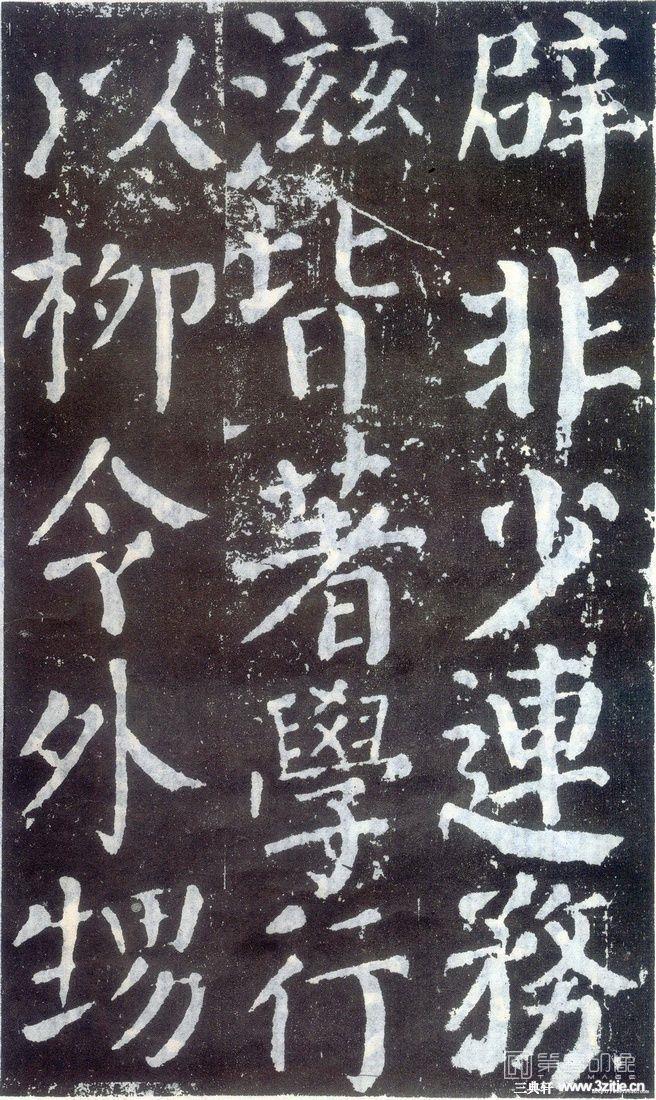 辟非少連務
滋皆著學行
以柳令外甥
第一印像
三典轩 www.3zitie.cn